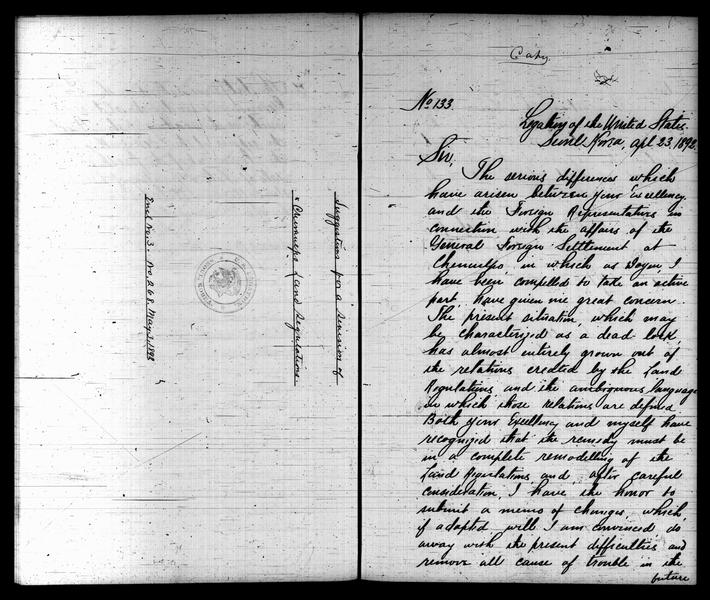 Suggestion for a Revision of
"Chemulpo Land Regulations.
Encl. No. 3. No. 268. May 3, 1892
Copy.
No 133.
Legation of the United States.
Seoul Korea, Apl 23, 1892.
Sir,
The serious differences which
have arisen between your Excellency
and the Foreign Representatives in
connection with the affairs of the
General Foreign Settlement at
Chemulpo, in which as Doyen, I
have been compelled to take an active
part, have given me great concern.
The present situation, which may
be characterized as a dead lock,
has almost entirely grown out of
the relations created by the Land
Regulations and the ambiguous language
in which those relations are defined
Both your Excellency and myself have
recognized that the remedy must be
in a complete remodelling of the
Land Regulations and after careful
consideration, I have the honor to
submit a memo of changes, which
if adopted will I am convinced do
away with the present difficulties and
remove all cause of trouble in the
future